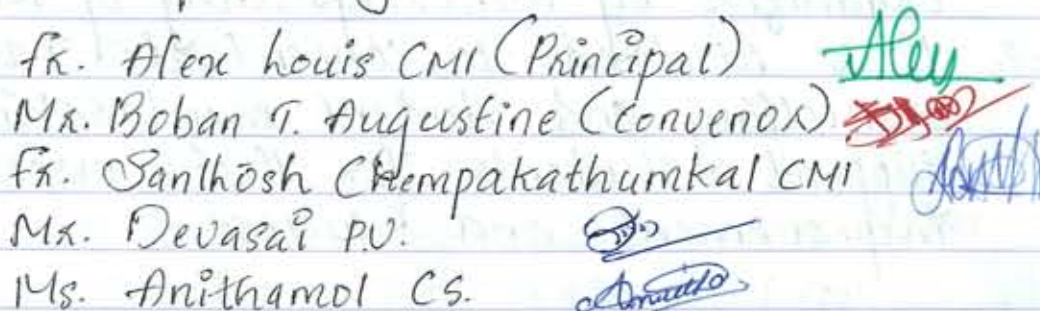 Fr. Alex Louis CMI (Principal) Alex
Mr. Boban T. Augustine (Convenor)
Fr. Santhosh Chempakathumkal CMI
Mr. Devasai P.V.
Ms. Anithamol CS.